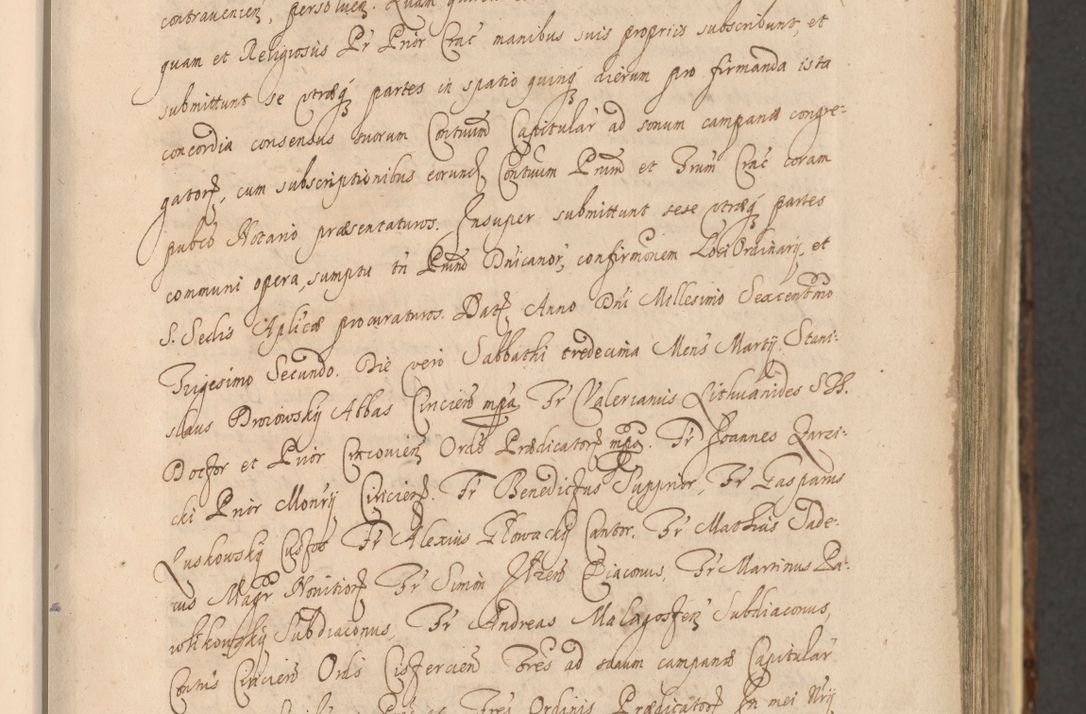 contravenien, persoluen. Quam
quam et Religiosus Pr Prior Crac manibus suis proprijs subscribunt, et
submittunt se utræq partes in spatio quinq dierum pro firmanda ista
concordia consensus suorum Contuum Capitular ad sonum campanæ congre-
gator, cum subscriptionibus eorund Contuum Prum et Frum Crac coram
pubco Notario præsentaturos. Insuper submittunt sese utræq partes
communi opera, sumptu tn Prum Dnicanor, confirmonem Loci Ordinarij, et
S. Sedis Aplicæ procuraturos. Dat Anno Dni Millesimo Sexcentmo
Trigesimo Secundo. Die vero Sabbathi tredecima Mens Martij. Stani-
slaus Drozowskij Abbas Ciricien mpa. Fr Valerianus Lithuanides S.Th.
Doctor et Prior Cracovien Ordis Prædicator mpa. Fr Joannes Zarzi-
cki Prior Monrij Ciricien. Fr Benedictus Supprior, Fr Gasparus
Luskowskij Custos Fr Alexius Glowackij Cantor. Fr Mathias Tade-
us Magr Novitior Fr Simon Diaconus, Fr Martinus Pa-
Subdiaconus, Fr Andreas Subdiaconus,
Contus Ciricien Ordis Cistercien Fres ad sonum campanæ Capitular
Frei Ordinis Prædicator In mei Nrij